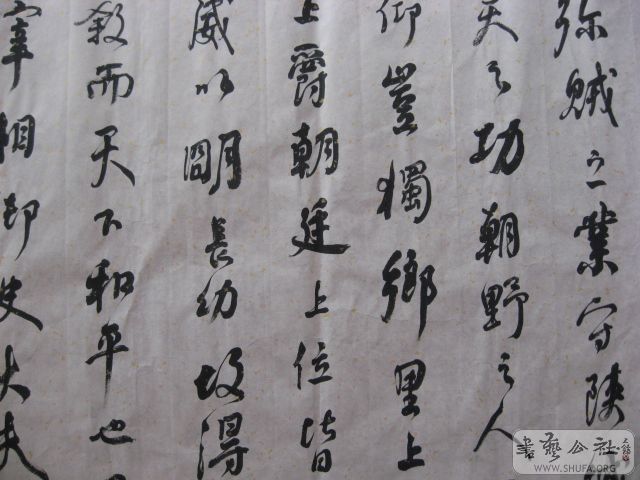 弥賊之業守陝
天之功朝野之人
仰豈獨鄉里上
上爵朝廷上位皆
威以明長幼故得
敘而天下和平也
宰相御史大夫
書藝公社
WWW.SHUFA.ORG